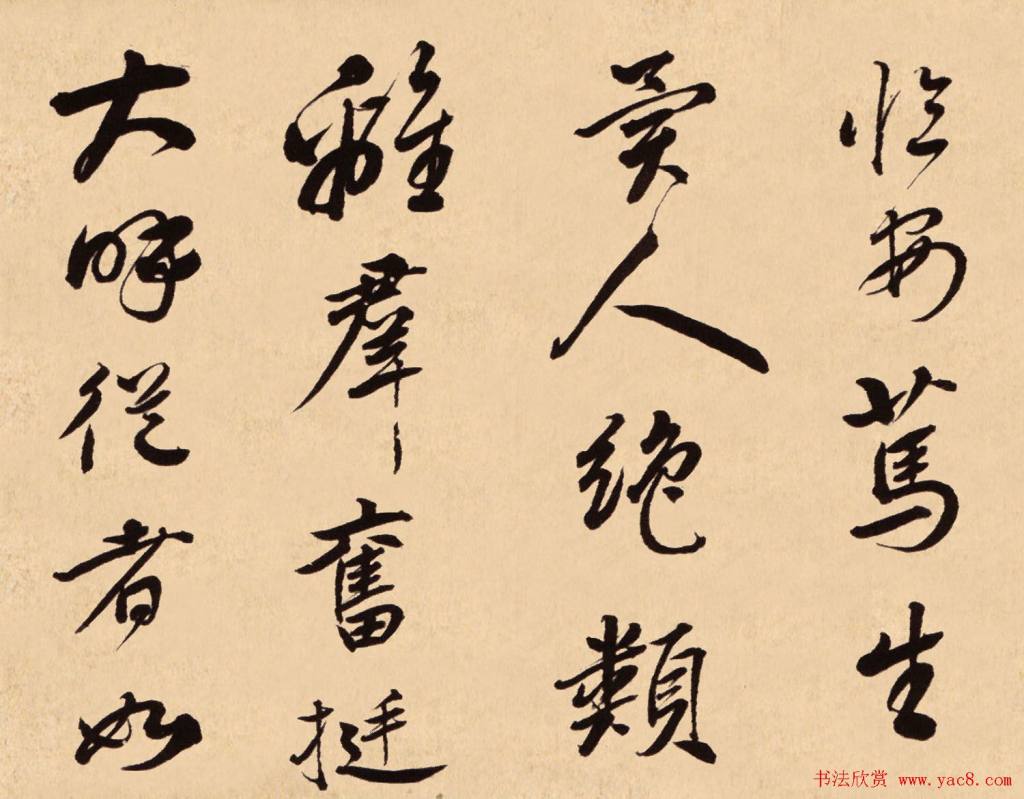 臨安篤生
異人絕類
離羣奮挺
大呼從者如
书法欣赏 www.yac8.com